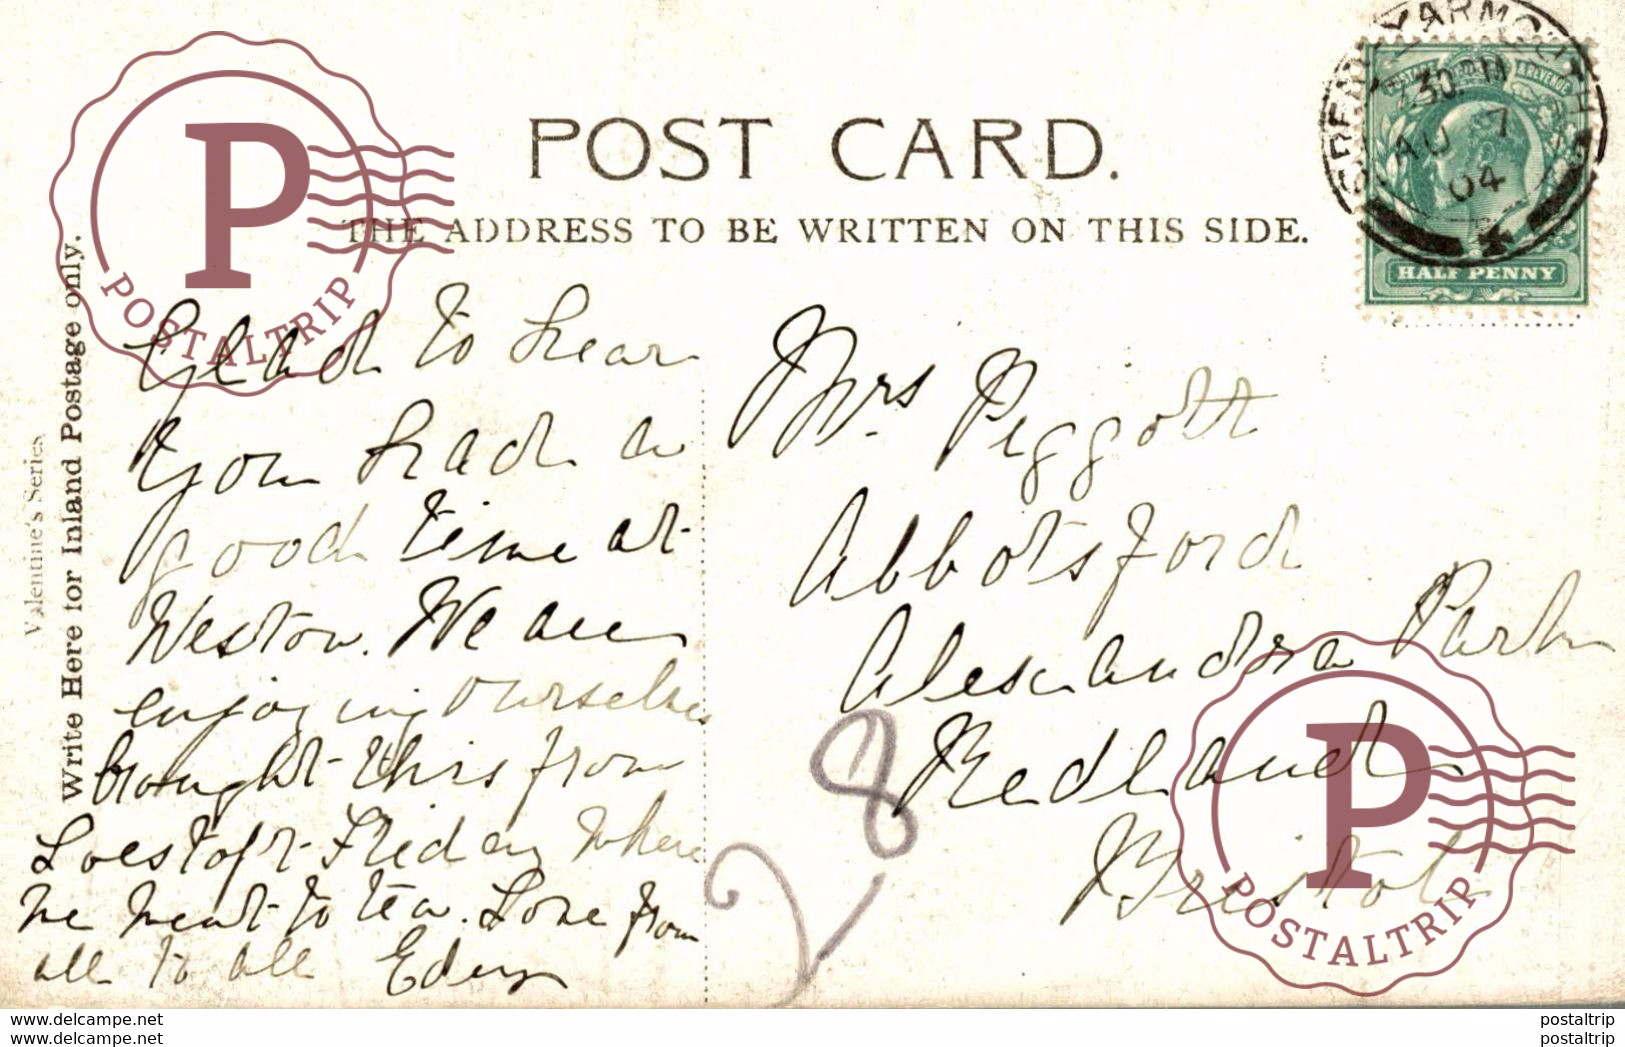 POST CARD.
THE ADDRESS TO BE WRITTEN ON THIS SIDE.
GREAT YARMOUTH
7 30 PM
AU 7
04
POSTAGE & REVENUE
HALF PENNY
Valentine's Series
Write Here for Inland Postage only.
Glad to hear
you had a
good time at
Weston. We are
enjoying ourselves
brought this from
Loestoft Friday where
we went to tea. Love from
all to all
Mrs Piggott
Abbotsford
Alexandra Park
Redland
Bristol
28
P
POSTALTRIP
P
POSTALTRIP
www.delcampe.net
postaltrip
www.delcampe.net
postaltrip